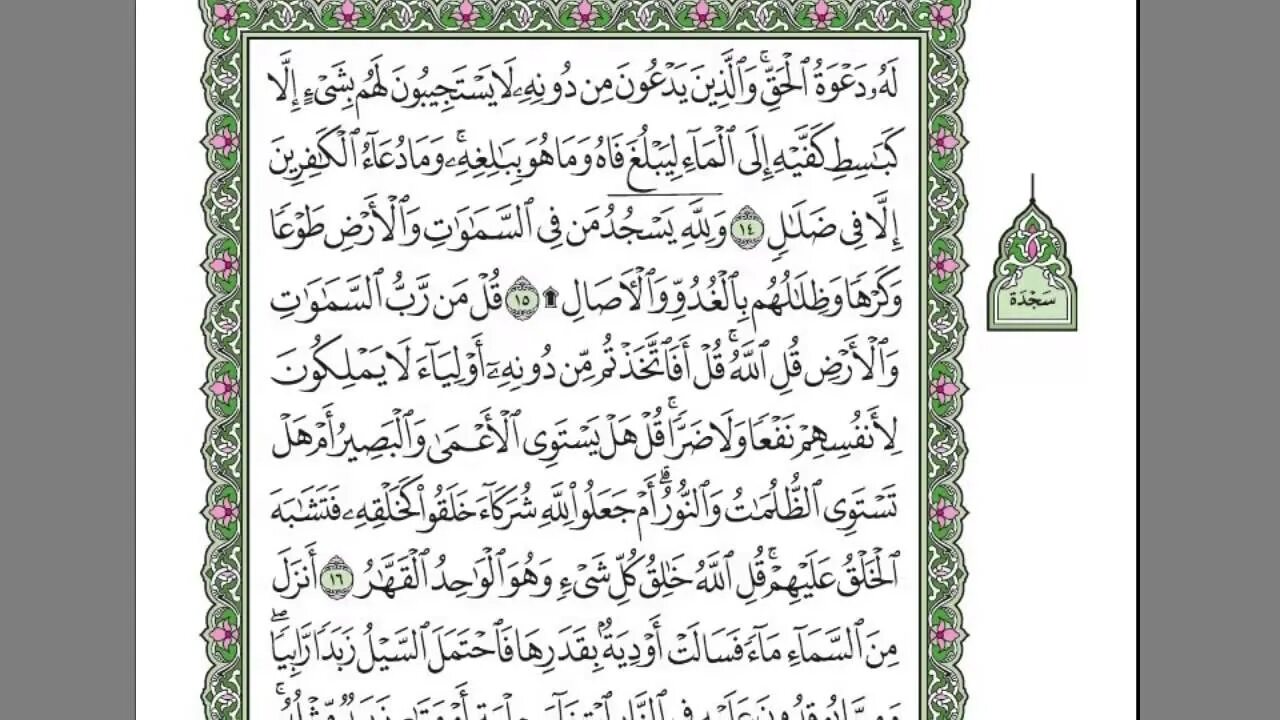 لَهُۥ دَعْوَةُ ٱلْحَقِّۚ وَٱلَّذِينَ يَدْعُونَ مِن دُونِهِۦ لَا يَسْتَجِيبُونَ لَهُم بِشَىْءٍ إِلَّا
كَبَـٰسِطِ كَفَّيْهِ إِلَى ٱلْمَآءِ لِيَبْلُغَ فَاهُ وَمَا هُوَ بِبَـٰلِغِهِۦۚ وَمَا دُعَآءُ ٱلْكَـٰفِرِينَ
إِلَّا فِى ضَلَـٰلٍ ١٤ وَلِلَّهِ يَسْجُدُ مَن فِى ٱلسَّمَـٰوَٰتِ وَٱلْأَرْضِ طَوْعًا
وَكَرْهًا وَظِلَـٰلُهُم بِٱلْغُدُوِّ وَٱلْـَٔاصَالِ ۩ ١٥ قُلْ مَن رَّبُّ ٱلسَّمَـٰوَٰتِ
سَجْدَة
وَٱلْأَرْضِ قُلِ ٱللَّهُۚ قُلْ أَفَٱتَّخَذْتُم مِّن دُونِهِۦٓ أَوْلِيَآءَ لَا يَمْلِكُونَ
لِأَنفُسِهِمْ نَفْعًا وَلَا ضَرًّاۚ قُلْ هَلْ يَسْتَوِى ٱلْأَعْمَىٰ وَٱلْبَصِيرُ أَمْ هَلْ
تَسْتَوِى ٱلظُّلُمَـٰتُ وَٱلنُّورُۗ أَمْ جَعَلُوا۟ لِلَّهِ شُرَكَآءَ خَلَقُوا۟ كَخَلْقِهِۦ فَتَشَـٰبَهَ
ٱلْخَلْقُ عَلَيْهِمْۚ قُلِ ٱللَّهُ خَـٰلِقُ كُلِّ شَىْءٍ وَهُوَ ٱلْوَٰحِدُ ٱلْقَهَّـٰرُ ١٦ أَنزَلَ
مِنَ ٱلسَّمَآءِ مَآءً فَسَالَتْ أَوْدِيَةٌۢ بِقَدَرِهَا فَٱحْتَمَلَ ٱلسَّيْلُ زَبَدًا رَّابِيًاۖ
وَمِمَّا يُوقِدُونَ عَلَيْهِ فِى ٱلنَّارِ ٱبْتِغَآءَ حِلْيَةٍ أَوْ مَتَـٰعٍ زَبَدٌ مِّثْلُهُۥۚ